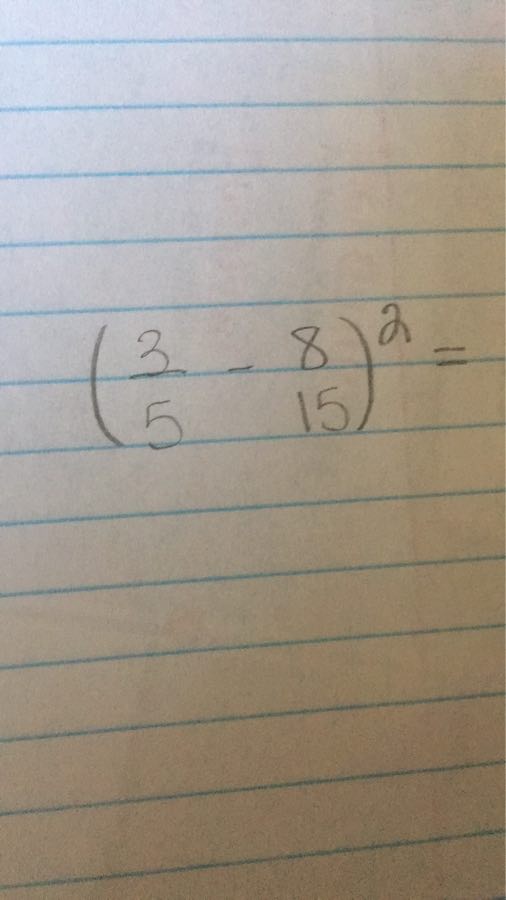 (3/5 - 8/15)² =